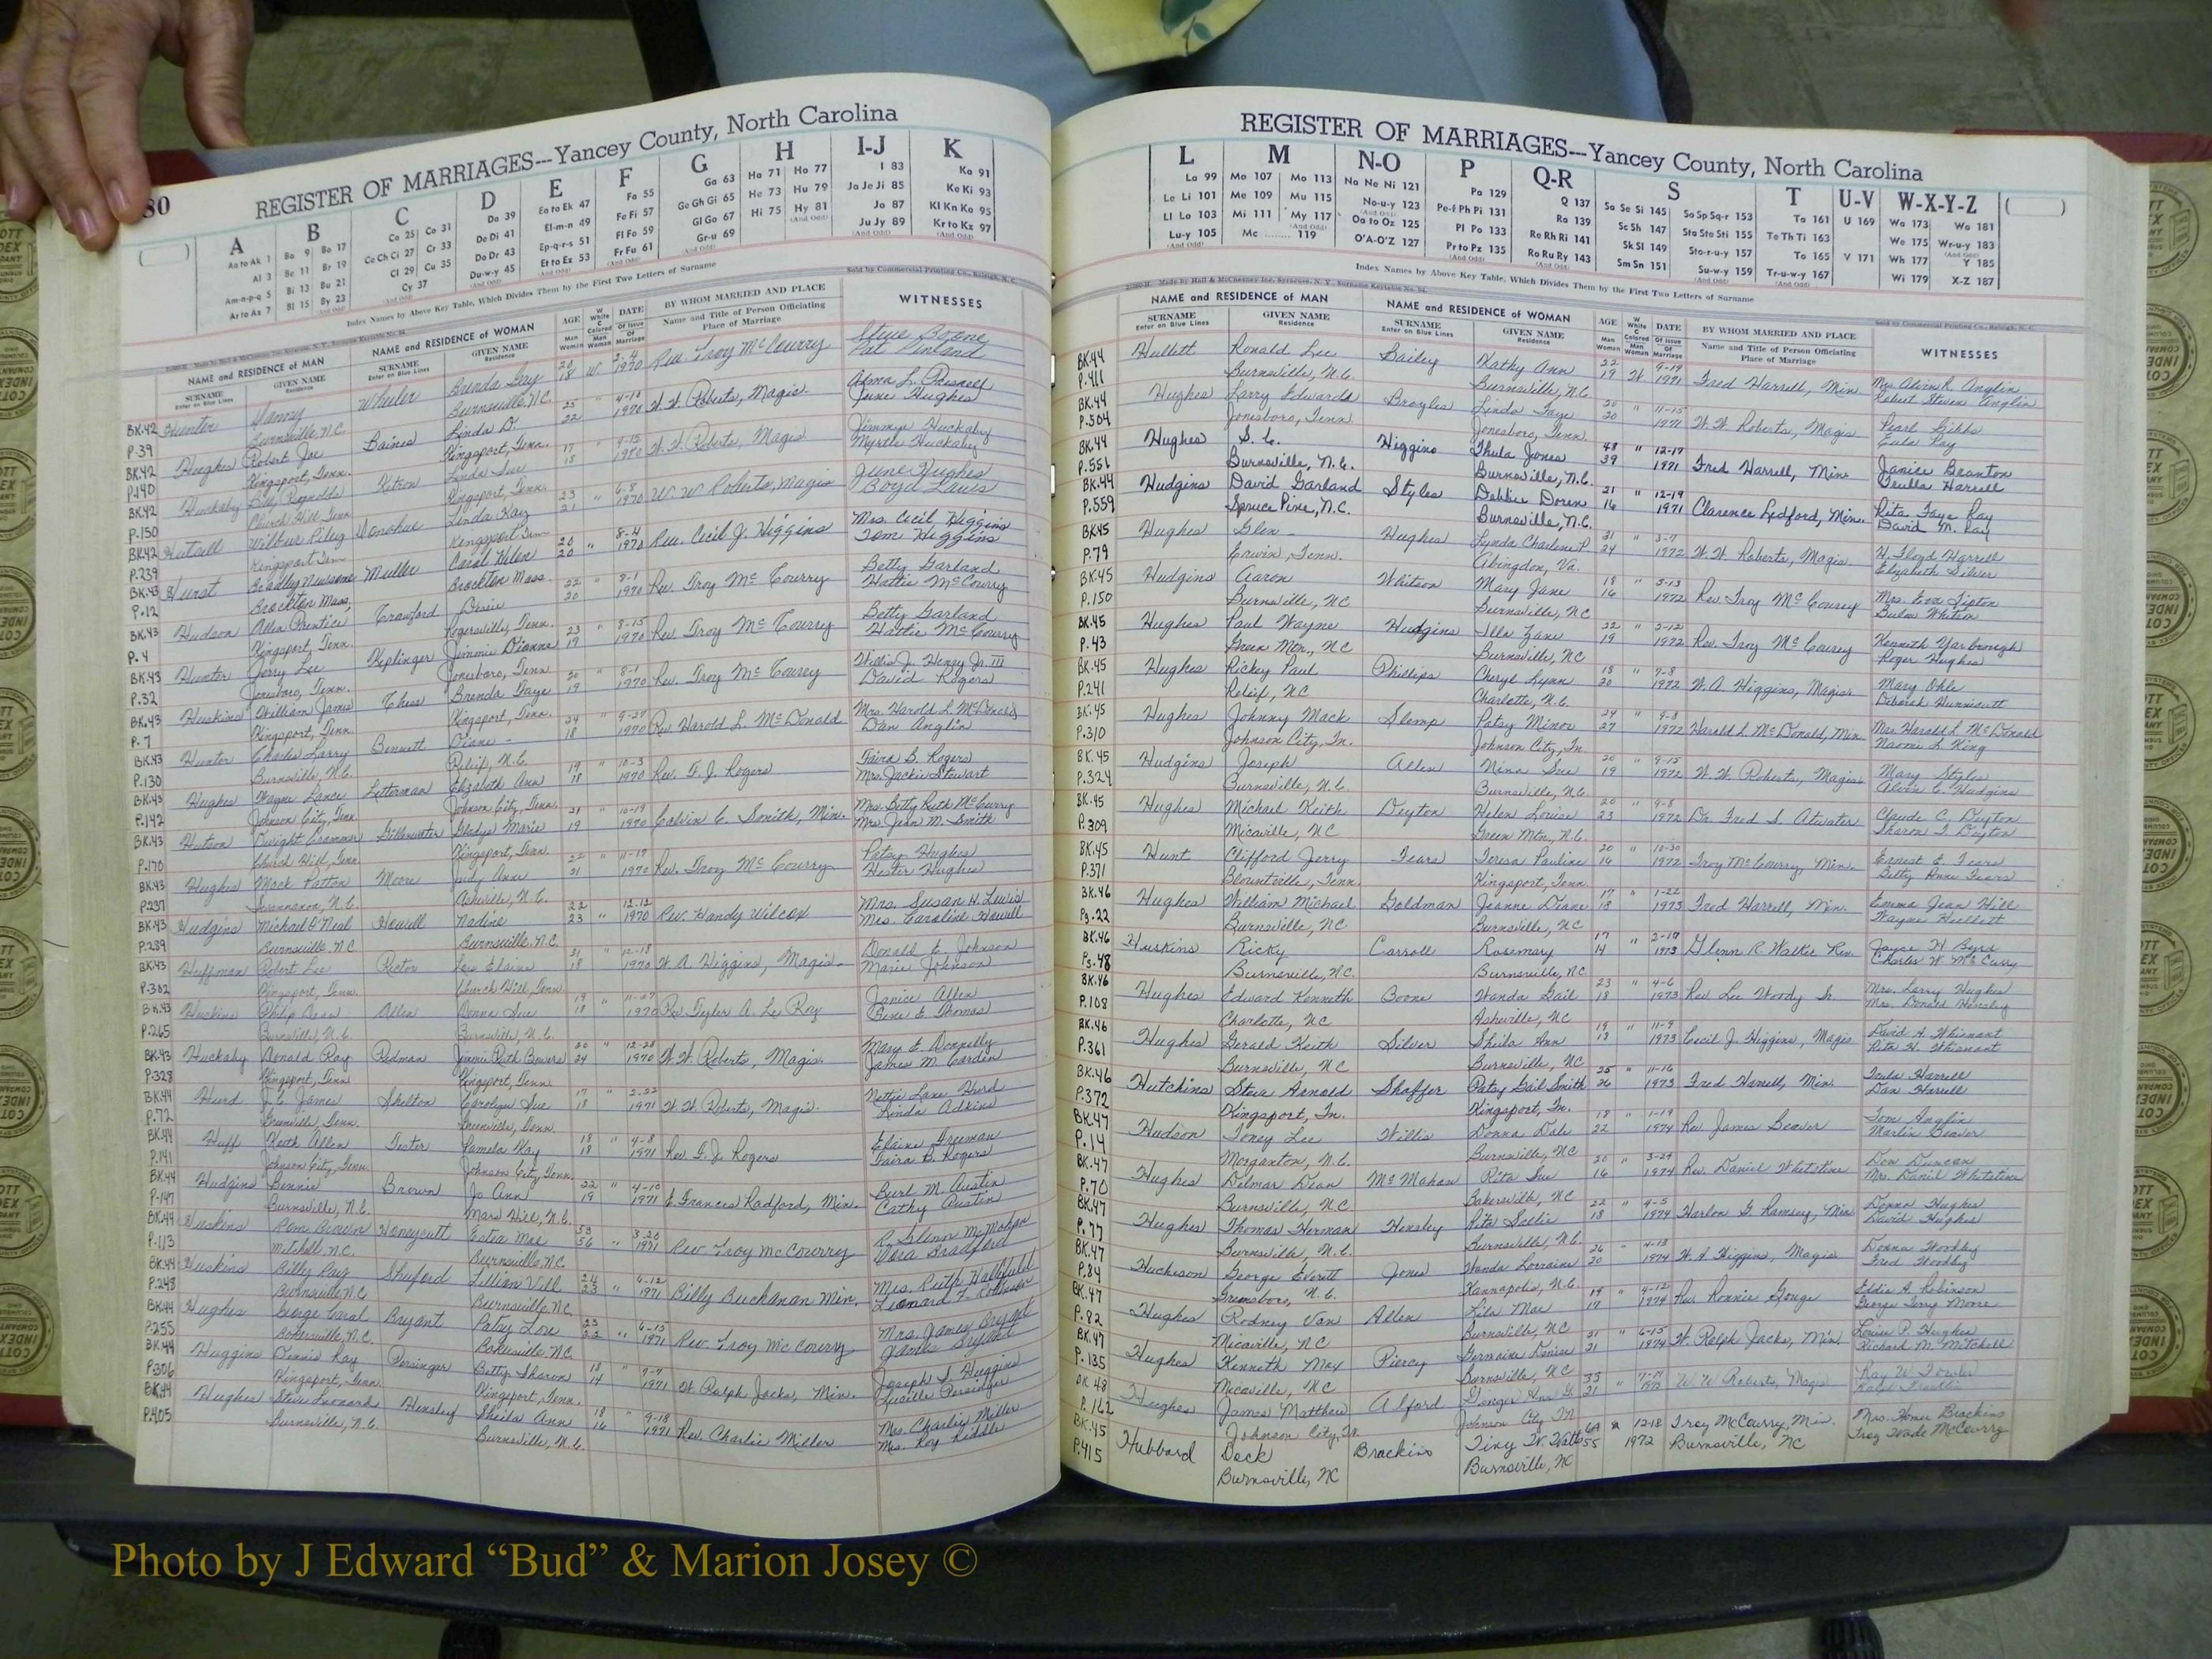 80
REGISTER OF MARRIAGES---Yancey County, North Carolina
A B C D E F G H I-J K
Aa to Ak 1 Ba 9 Bo 17 Ca 25 Co 31 Da 39 Ea to Ek 47 Fa 55 Ga 63 Ha 71 Ho 77 I 83 Ka 91
Al 3 Be 11 Br 19 Ce Ch Ci 27 Cr 33 De Di 41 El-m-n 49 Fe Fi 57 Ge Gh Gi 65 He 73 Hu 79 Ja Je Ji 85 Ke Ki 93
Am-n-p-q 5 Bi 13 Bu 21 Cl 29 Cu 35 Do Dr 43 Ep-q-r-s 51 Fl Fo 59 Gl Go 67 Hi 75 Hy 81 Jo 87 Kl Kn Ko 95
Ar to Az 7 Bl 15 By 23 Cy 37 Du-w-y 45 Et to Ez 53 Fr Fu 61 Gr-u 69 Ju Jy 89 Kr to Kz 97
Index Names by Above Key Table, Which Divides Them by the First Two Letters of Surname
Sold by Commercial Printing Co., Raleigh, N. C.
NAME and RESIDENCE of MAN NAME and RESIDENCE of WOMAN AGE DATE BY WHOM MARRIED AND PLACE WITNESSES
SURNAME GIVEN NAME SURNAME GIVEN NAME Name and Title of Person Officiating
Enter on Blue Lines Residence Enter on Blue Lines Residence Place of Marriage
BK.42 Hunter Danny Wheeler Brenda Gay 20 W 2-4 Rev. Troy McCourry Steve Boone
P.39 Burnsville, N.C. Burnsville, N.C. 18 1970
BK.42 Hughes Robert Joe Baines Linda D. 25 " 4-18 W. W. Roberts, Magis. Alma L. Presnell
P.140 Kingsport, Tenn. Kingsport, Tenn. 22 1970 June Hughes
BK.42 Huckaby Billy Reynolds Ketron Linda Sue 17 " W. W. Roberts, Magis Jimmye Huckaby
P.150 Church Hill, Tenn Kingsport, Tenn. 18 1970 Myrtle Huckaby
BK.42 Hutsell Wilbur Riley Donohue Linda Kay 23 " 6-8 W. W. Roberts, Magis June Hughes
P.239 Kingsport Tenn Kingsport Tenn 21 1970 Boyd Laws
BK.43 Hurst Bradley Newsome Muller Carol Helen 20 " 8-4 Rev. Cecil J. Higgins Mrs. Cecil Higgins
P.12 Brockton Mass. Brockton Mass. 20 1970 Tom Higgins
BK.43 Hudson Allen Prentice Crawford 22 " 8-1 Rev. Troy McCourry Betty Garland
P.4 Kingsport, Tenn. Rogersville, Tenn. 20 1970 Hattie McCourry
BK.43 Hunter Jerry Lee Keplinger Jimmie Dianne 23 " 8-15 Rev. Troy McCourry Betty Garland
P.32 Jonesboro, Tenn. Jonesboro, Tenn 19 1970 Hattie McCourry
BK.43 Huskins William James Brenda Faye 20 " 8-1 Rev. Troy McCourry Willis J. Henry Jr. III
P.7 Kingsport, Tenn. Kingsport, Tenn. 19 1970 David Rogers
BK.43 Hunter Charles Larry Bennett Diane 24 " 9-27 Rev. Harold L. McDonald Mrs. Harold L. McDonald
P.130 Burnsville, N.C. Relief, N.C. 18 1970 Dan Anglin
BK.43 Hughes Wayne Lance Letterman Elizabeth Ann 19 " 10-3 Rev. F. J. Rogers Faira B. Rogers
P.142 Johnson City, Tenn Johnson City, Tenn. 18 1970 Mrs. Jackie Stewart
BK.43 Hutson Dwight Crammer Gillenwater Gladys Marie 21 " 10-19 Calvin C. Smith, Min. Mrs. Betty Ruth McCurry
P.170 Church Hill, Tenn Kingsport, Tenn. 19 1970 Mrs Jean M. Smith
BK.43 Hughes Mack Patton Moore Judy Anne 22 " 11-19 Rev. Troy McCourry Patsy Hughes
P.237 Swannanoa, N.C. Asheville, N.C. 21 1970 Hester Hughes
BK.43 Hudgins Michael O'Neal Howell Nadine 22 " 12-12 Rev. Handy Wilcox Mrs. Susan H. Lewis
P.289 Burnsville N.C Burnsville N.C. 23 1970 Mrs Caroline Howell
BK.43 Huffman Robert Lee Rector Elaine 31 " 12-18 W. A. Higgins, Magis. Donald E. Johnson
P.302 Kingsport, Tenn. Church Hill, Tenn. 18 1970 Marie Johnson
BK.43 Huskins Philip Dean Allen Donna Sue 19 " 11-27 Rev. Tyler A. Le Roy Janice Allen
P.265 Burnsville, N.C. Burnsville, N.C. 18 1970 Gene E. Thomas
BK.43 Huckaby Donald Ray Redman Jimmie Ruth Bowers 20 " 12-28 W. W. Roberts, Magis. Mary E. Donnelly
P.328 Kingsport, Tenn Kingsport, Tenn 24 1970 James M. Carden
BK.44 Hurd J.C. James Shelton Carolyn Sue 17 " 2-22 W. W. Roberts, Magis. Nettie Lane Hurd
P.72 Greenville, Tenn. Greenville, Tenn. 18 1971 Linda Adkins
BK.44 Huff Keith Allen Tester Pamela Kay 18 " 4-8 Rev. F. J. Rogers Elaine Freeman
P.141 Johnson City, Tenn. Johnson City, Tenn. 18 1971 Faira B. Rogers
BK.44 Hudgins Bennie Brown Jo Ann 22 " 4-10 E. Frances Radford, Min. Burl M. Austin
P.147 Burnsville, N.C. Mars Hill, N.C. 19 1971 Cathy Austin
BK.44 Huskins Rom Brown Honeycutt Estia Mae 53 " 3-20 Rev. Troy McCourry R. Glenn McMahan
P.113 Mitchell, N.C. Burnsville NC 56 1971 Vera Bradford
BK.44 Huskins Billy Ray Shuford Lillian Vill 24 " 6-12 Billy Buchanan Min. Mrs. Ruth
P.248 Burnsville N.C Burnsville NC 23 1971 Leonard F.
BK.44 Hughes George Caral Bryant Patsy Lou 23 " 6-13 Rev. Troy McCourry Mrs. James Bryant
P.255 Bakersville, N.C. Bakersville, NC 22 1971 James Bryant
BK.44 Huggins Dennis Ray Persinger Betty Sharon 18 " W. Ralph Jacks, Min. Joseph S. Huggins
P.306 Kingsport, Tenn. Kingsport, Tenn. 14 1971 Lucille Persinger
BK.44 Hughes Steve Leonard Hensley Sheila Ann 18 " 9-18 Rev. Charlie Miller Mrs. Charlie Miller
P.405 Burnsville, N.C. Burnsville, N.C. 16 1971 Mrs. Roy Riddle
REGISTER OF MARRIAGES---Yancey County, North Carolina
L M N-O P Q-R S T U-V W-X-Y-Z
La 99 Ma 107 Mo 113 Na Ne Ni 121 Pa 129 Q 137 Sa Se Si 145 So Sp Sq-r 153 Ta 161 U 169 Wa 173 Wo 181
Le Li 101 Me 109 Mu 115 No-u-y 123 Pe-f Ph Pi 131 Ra 139 Sc Sh 147 Sta Ste Sti 155 Te Th Ti 163 We 175 Wr-u-y 183
Ll Lo 103 Mi 111 My 117 Oa to Oz 125 Pl Po 133 Re Rh Ri 141 Sk Sl 149 Sto-r-u-y 157 To 165 V 171 Wh 177 Y 185
Lu-y 105 Mc 119 O'A-O'Z 127 Pr to Pz 135 Ro Ru Ry 143 Sm Sn 151 Su-w-y 159 Tr-u-w-y 167 Wi 179 X-Z 187
Index Names by Above Key Table, Which Divides Them by the First Two Letters of Surname
Made by Hall & McChesney Inc. Syracuse, N. Y.
Sold by Commercial Printing Co., Raleigh, N. C.
NAME and RESIDENCE OF MAN NAME and RESIDENCE OF WOMAN AGE DATE BY WHOM MARRIED AND PLACE WITNESSES
SURNAME GIVEN NAME SURNAME GIVEN NAME Name and Title of Person Officiating
Enter on Blue Lines Residence Enter on Blue Lines Residence Place of Marriage
BK.44 Hullett Ronald Lee Bailey Kathy Ann 22 W. 9-19 Fred Harrell, Min Mrs. Alvin R. Anglin
P.411 Burnsville, N.C. Burnsville, N.C. 19 1971 Robert Steven Anglin
BK.44 Hughes Larry Edward Broyles Linda Faye 20 " 11-15 W. W. Roberts, Magis Pearl Gibbs
P.504 Jonesboro, Tenn. Jonesboro, Tenn. 20 1971 Eula Ray
BK.44 Hughes S. C. Higgins Thula Jones 48 " 12-17 Fred Harrell, Min Janice Branton
P.551 Burnsville, N.C. Burnsville, N.C. 39 1971 Harrell
BK.44 Hudgins David Garland Styles Debbie Doren 21 " 12-19 Clarence Ledford, Min. Rita Faye Ray
P.559 Spruce Pine, N.C. Burnsville, N.C. 16 1971 David M. Ray
BK.45 Hughes Glen Hughes Lynda Charlene P. 31 " 3-7 W. W. Roberts, Magis. H. Floyd Harrell
P.79 Erwin, Tenn. Abingdon, Va. 24 1972 Elizabeth Silver
BK.45 Hudgins Aaron Whitson Mary Jane 18 " 5-13 Rev Troy McCourry Mrs. Eva Tipton
P.150 Burnsville, NC Burnsville, NC 16 1972 Whitson
BK.45 Hughes Paul Wayne Hudgins Illa Zane 22 " 2-12 Rev. Troy McCourry Kenneth Yarbrough
P.43 Green Mtn., NC Burnsville, NC 19 1972 Roger Hughes
BK.45 Hughes Rickey Paul Phillips Cheryl Lynn 18 " 7-8 W. A. Higgins, Magis. Mary Ohle
P.241 Relief, NC Charlotte, N.C. 20 1972 Deborah Hunnicutt
BK.45 Hughes Johnny Mack Slemp Patsy Minor 24 " 9-8 Harold L. McDonald, Min Mrs. Harold L. McDonald
P.310 Johnson City, Tn. Johnson City, Tn 27 1972 Naomi L. King
BK.45 Hudgins Joseph Allen Nina Sue 20 " 9-15 W. W. Roberts, Magis. Mary Styles
P.324 Burnsville, N.C. Burnsville, N.C. 19 1972 Alvin C. Hudgins
BK.45 Hughes Michael Keith Deyton Helen Louise 20 " 9-8 Dr. Fred S. Atwater Claude C. Deyton
P.309 Micaville, NC Green Mtn., N.C. 23 1972 Sharon T. Deyton
BK.45 Hunt Clifford Jerry Fears Teresa Pauline 20 " 10-30 Troy McCourry, Min. Ernest E. Fears
P.371 Blountville, Tenn. Kingsport, Tenn 16 1972 Betty Anne Fears
BK.46 Hughes William Michael Goldman Jeanne Diane 17 " 1-22 Fred Harrell, Min. Emma Jean Hill
Pg.22 Burnsville, NC Burnsville, NC 18 1973 Wayne Hullett
BK.46 Huskins Ricky Carroll Rosemary 17 " 2-17 Glenn R Walker Rev. Joyce H Byrd
Pg.48 Burnsville, NC. Burnsville, NC 14 1973 Charles W. McCurry
BK.46 Hughes Edward Kenneth Boone Wanda Gail 23 " 4-6 Rev Lee Woody Sr. Mrs. Larry Hughes
P.108 Charlotte, NC Asheville, NC 18 1973 Mrs. Donald Hensley
BK.46 Hughes Gerald Keith Silver Sheila Ann 19 " 11-9 Cecil J. Higgins, Magis David A. Whisnant
P.361 Burnsville, NC Burnsville, NC 18 1973 Rita H. Whisnant
BK.46 Hutchins Steve Arnold Shaffer Patsy Gail Smith 25 " 11-16 Fred Harrell, Min. Harrell
P.372 Kingsport, Tn. Kingsport, Tn. 26 1973 Dan Harrell
BK.47 Hudson Toney Lee Willis Donna Dale 18 " 1-19 Rev James Beaver Tom Anglin
P.14 Morganton, N.C. Burnsville, NC 22 1974 Martin Beaver
BK.47 Hughes Delmar Dean McMahan Rita Sue 20 " 3-24 Rev. Daniel Whetstine Don Duncan
P.70 Burnsville, NC Bakersville, NC 16 1974 Mrs. Daniel Whetstine
BK.47 Hughes Thomas Herman Hensley Rita Sallie 22 " 4-5 Harlon G. Ramsey, Min Donna Hughes
P.77 Burnsville, N.C. Burnsville, N.C. 18 1974 David Hughes
BK.47 Huchison George Everett Jones Wanda Lorraine 26 " 4-13 W. A. Higgins, Magis Donna Woodby
P.84 Greensboro, N.C. Kannapolis, N.C. 20 1974 Fred Woodby
BK.47 Hughes Rodney Van Allen Lila Mae 19 " 4-12 Rev. Ronnie Gouge Eddie A. Robinson
P.82 Micaville, NC Burnsville, NC 17 1974 George Terry Moore
BK.47 Hughes Kenneth Max Piercy Germaine Denise 21 " 6-15 W. Ralph Jacks, Min Louise P. Hughes
P.135 Micaville, NC Burnsville, NC 21 1974 Richard M. Mitchell
BK 48 Hughes James Matthew Alford Ginger 33 " W W Roberts, Magis Ray W Fowler
P.162 Johnson City, Tn. Johnson City TN 21
BK.45 Hubbard Dock Brackins Tiny W. Watts 69 W 12-18 Troy McCourry, Min. Mrs. Homer Brackins
P.415 Burnsville, NC Burnsville, NC 55 1972 Burnsville, NC Troy Wade McCourry
Photo by J Edward “Bud” & Marion Josey ©